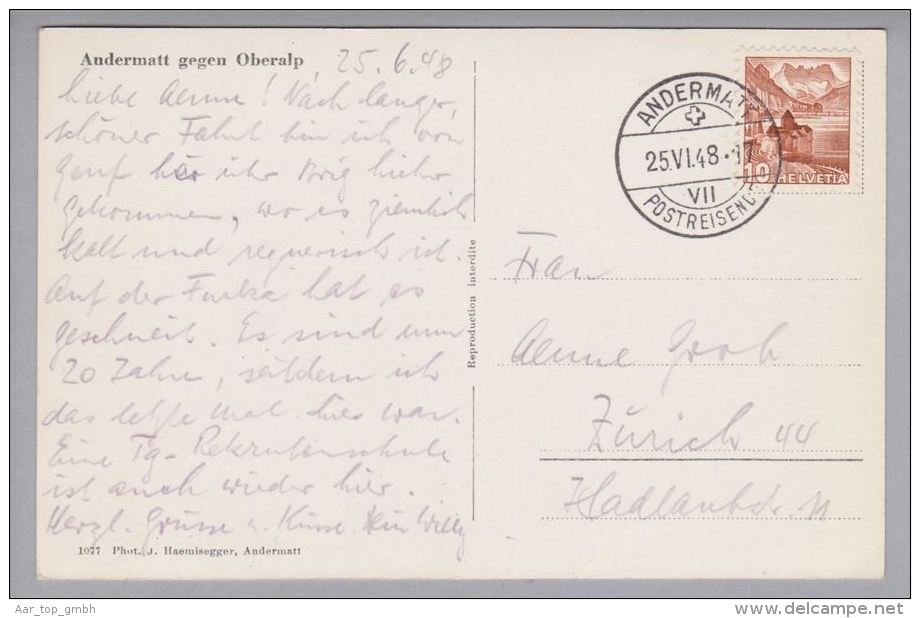 Andermatt gegen Oberalp
25.6.48
Liebe Aenne! Nach langer,
schöner Fahrt bin ich von
Genf her über Brig hieher
gekommen, wo es ziemlich
kalt und regnerisch ist.
Auf der Furka hat es
geschneit. Es sind nun
20 Jahre, seitdem ich
das letzte Mal hier war.
Eine Tg-Rekrutenschule
ist auch wieder hier.
Herzl. Grüsse u. Küsse, Dein Willy
1077 Phot. J. Haemisegger, Andermatt
Reproduction interdite
ANDERMATT
25.VI.48.-17
VII
POSTREISEND
10 HELVETIA
Frau
Aenne Grob
Zürich 44
Hadlaubstr. 11
Aar_top_gmbh
delcampe.net